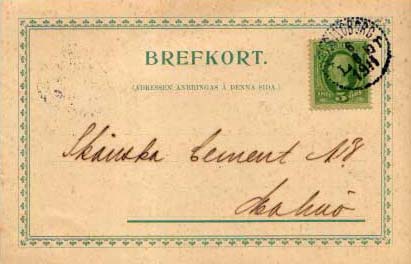 BREFKORT.
(ADRESSEN ANBRINGAS Å DENNA SIDA.)
5
Skånska Cement AB
Malmö